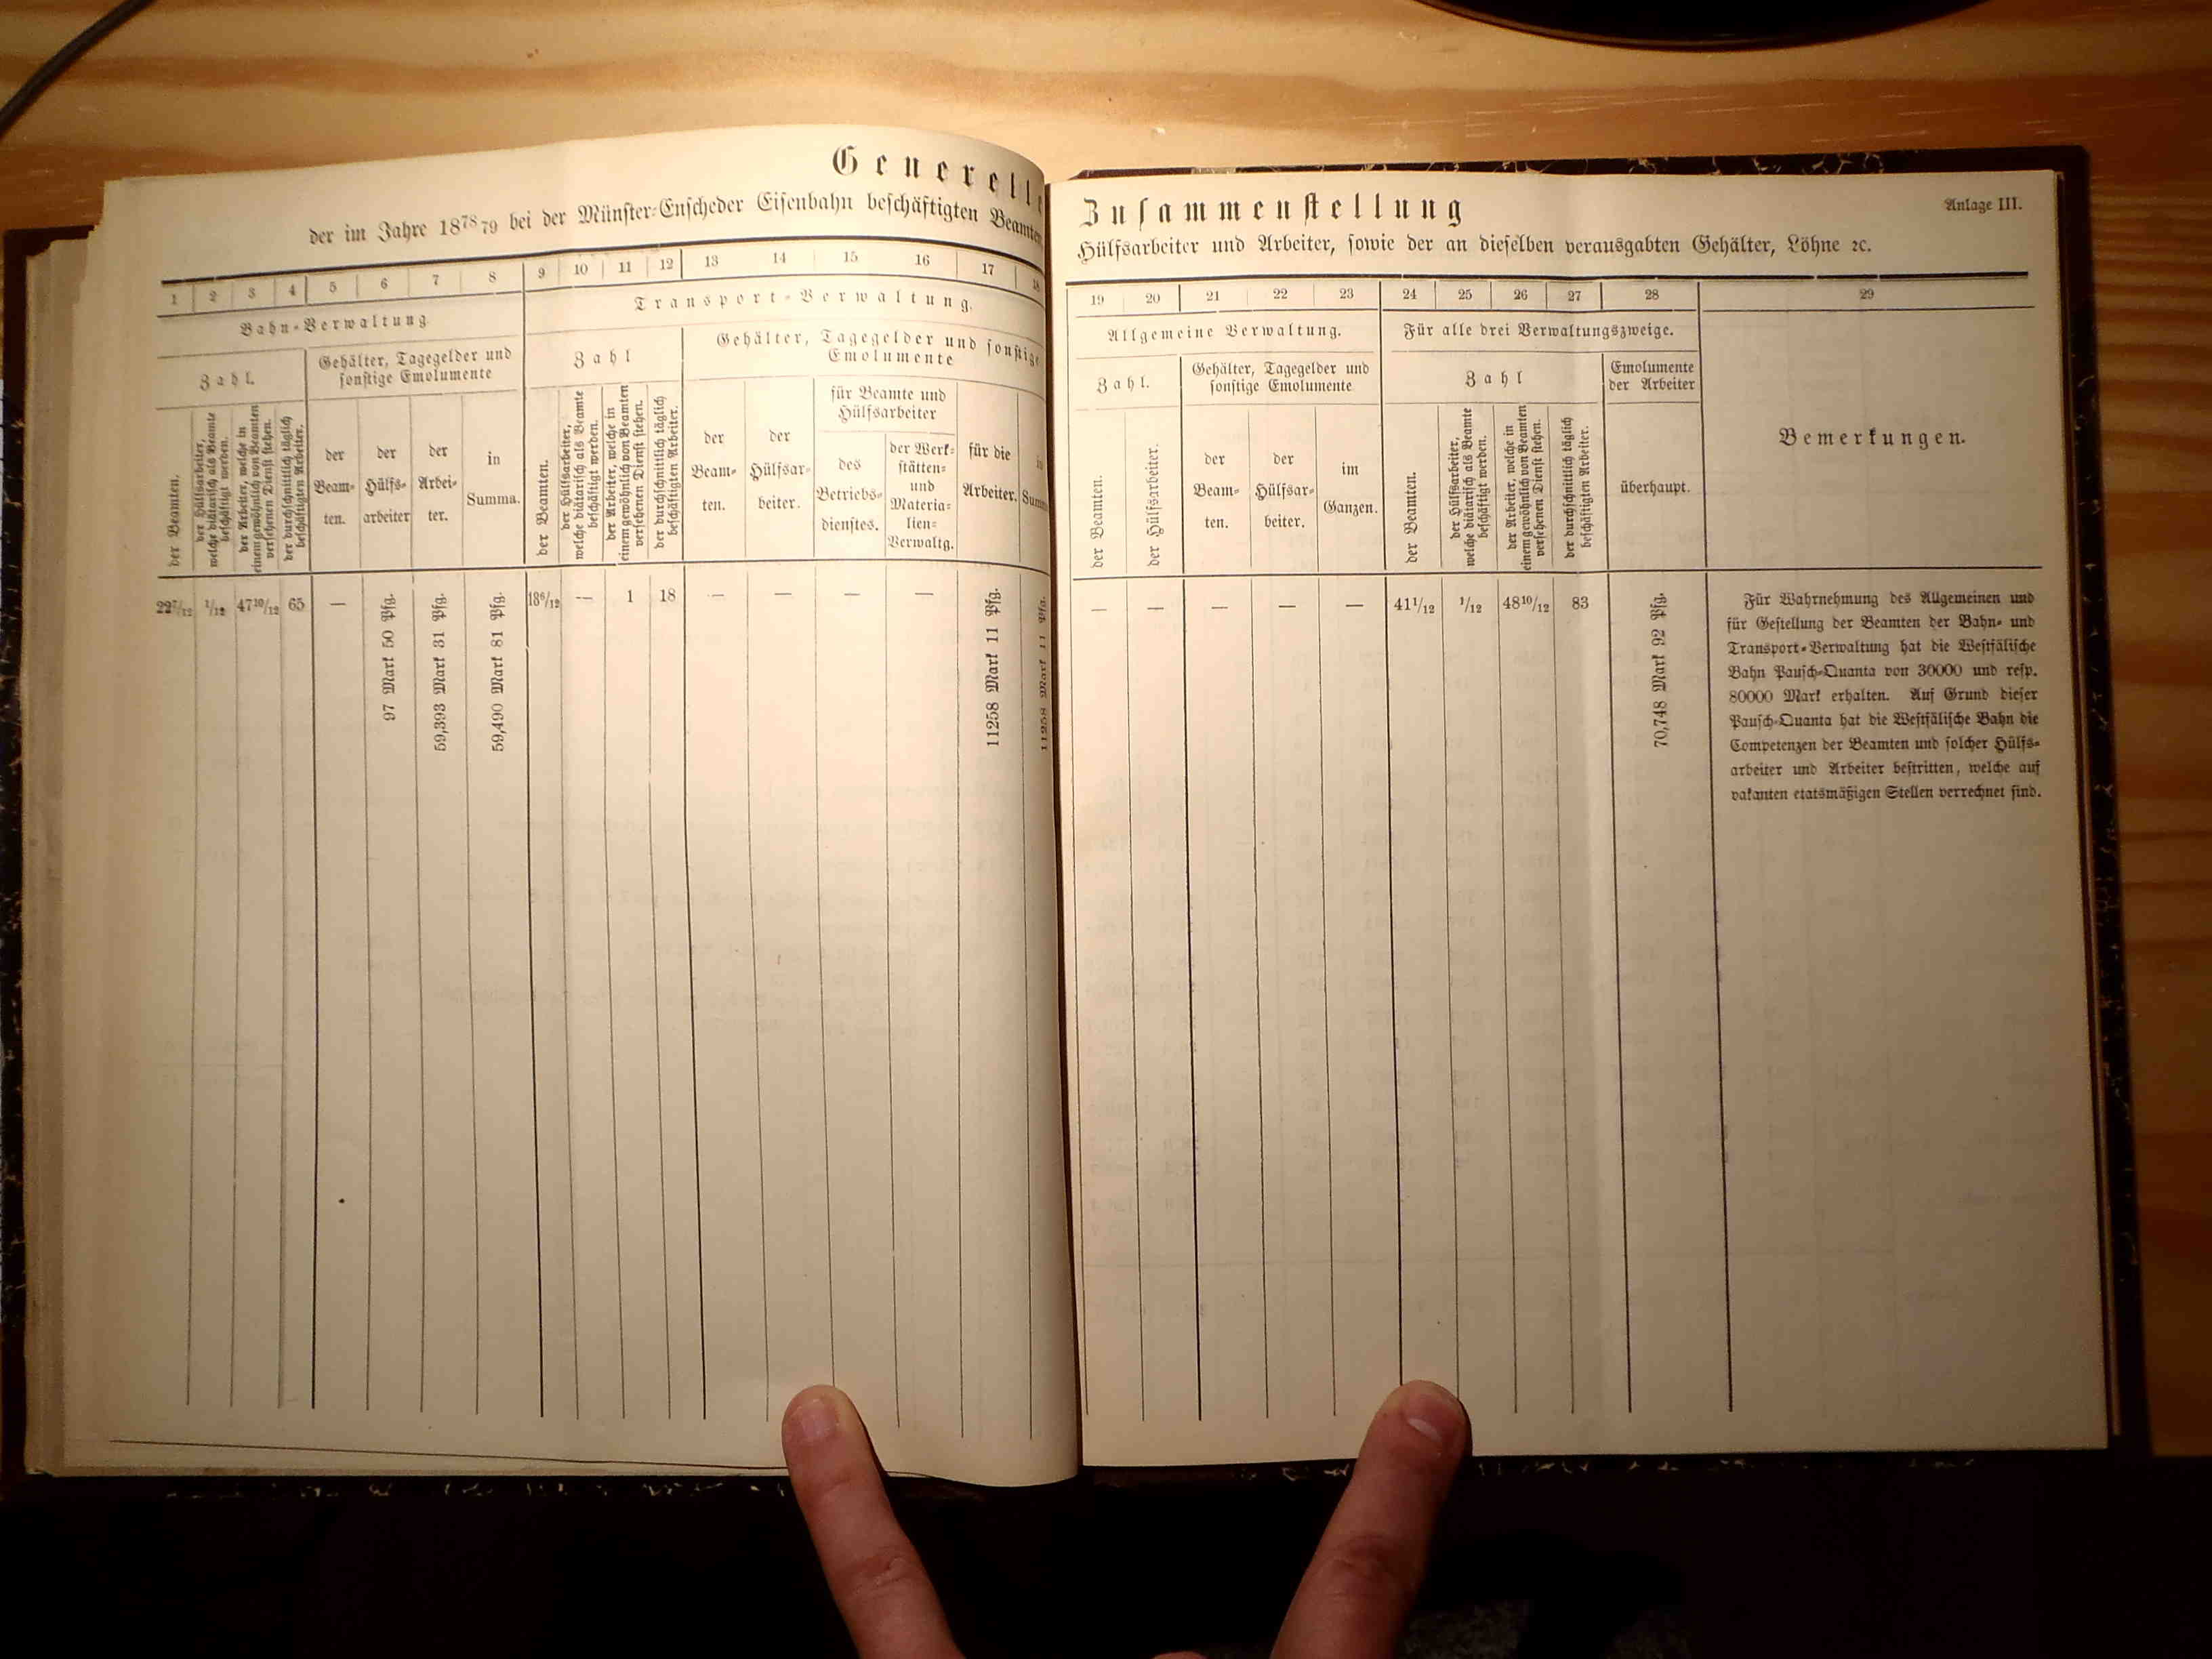 Generelle Zusammenstellung
Anlage III.
der im Jahre 1878/79 bei der Münster-Enscheder Eisenbahn beschäftigten Beamten,
Hülfsarbeiter und Arbeiter, sowie der an dieselben verausgabten Gehälter, Löhne ꝛc.
1 2 3 4 5 6 7 8 9 10 11 12 13 14 15 16 17 18
Bahn-Verwaltung
Transport-Verwaltung.
Zahl.
Gehälter, Tagegelder und
sonstige Emolumente
Zahl
Gehälter, Tagegelder und sonstige
Emolumente
der Beamten.
der Hülfsarbeiter,
welche diätarisch als Beamte
beschäftigt werden.
der Arbeiter, welche in
einem gewöhnlich von Beamten
versehenen Dienst stehen.
der durchschnittlich täglich
beschäftigten Arbeiter.
der
Beam-
ten.
der
Hülfs-
arbeiter
der
Arbei-
ter.
in
Summa.
der Beamten.
der Hülfsarbeiter,
welche diätarisch als Beamte
beschäftigt werden.
der Arbeiter, welche in
einem gewöhnlich von Beamten
versehenen Dienst stehen.
der durchschnittlich täglich
beschäftigten Arbeiter.
der
Beam-
ten.
der
Hülfsar-
beiter.
für Beamte und
Hülfsarbeiter
des
Betriebs-
dienstes.
der Werk-
stätten-
und
Materia-
lien-
Verwaltg.
für die
Arbeiter.
in
Summa
22 7/12 1/12 47 10/12 65 — 97 Mark 50 Pfg. 59,393 Mark 31 Pfg. 59,490 Mark 81 Pfg. 18 6/12 — 1 18 — — — — 11258 Mark 11 Pfg. 11258 Mark 11 Pfg.
19 20 21 22 23 24 25 26 27 28 29
Allgemeine Verwaltung.
Für alle drei Verwaltungszweige.
Zahl.
Gehälter, Tagegelder und
sonstige Emolumente
Zahl
Emolumente
der Arbeiter
der Beamten.
der Hülfsarbeiter.
der
Beam-
ten.
der
Hülfsar-
beiter.
im
Ganzen.
der Beamten.
der Hülfsarbeiter,
welche diätarisch als Beamte
beschäftigt werden.
der Arbeiter, welche in
einem gewöhnlich von Beamten
versehenen Dienst stehen.
der durchschnittlich täglich
beschäftigten Arbeiter.
überhaupt.
Bemerkungen.
— — — — — 41 1/12 1/12 48 10/12 83 70,748 Mark 92 Pfg.
Für Wahrnehmung des Allgemeinen und
für Gestellung der Beamten der Bahn- und
Transport-Verwaltung hat die Westfälische
Bahn Pausch-Quanta von 30000 und resp.
80000 Mark erhalten. Auf Grund dieser
Pausch-Quanta hat die Westfälische Bahn die
Competenzen der Beamten und solcher Hülfs-
arbeiter und Arbeiter bestritten, welche auf
vakanten etatsmäßigen Stellen verrechnet sind.